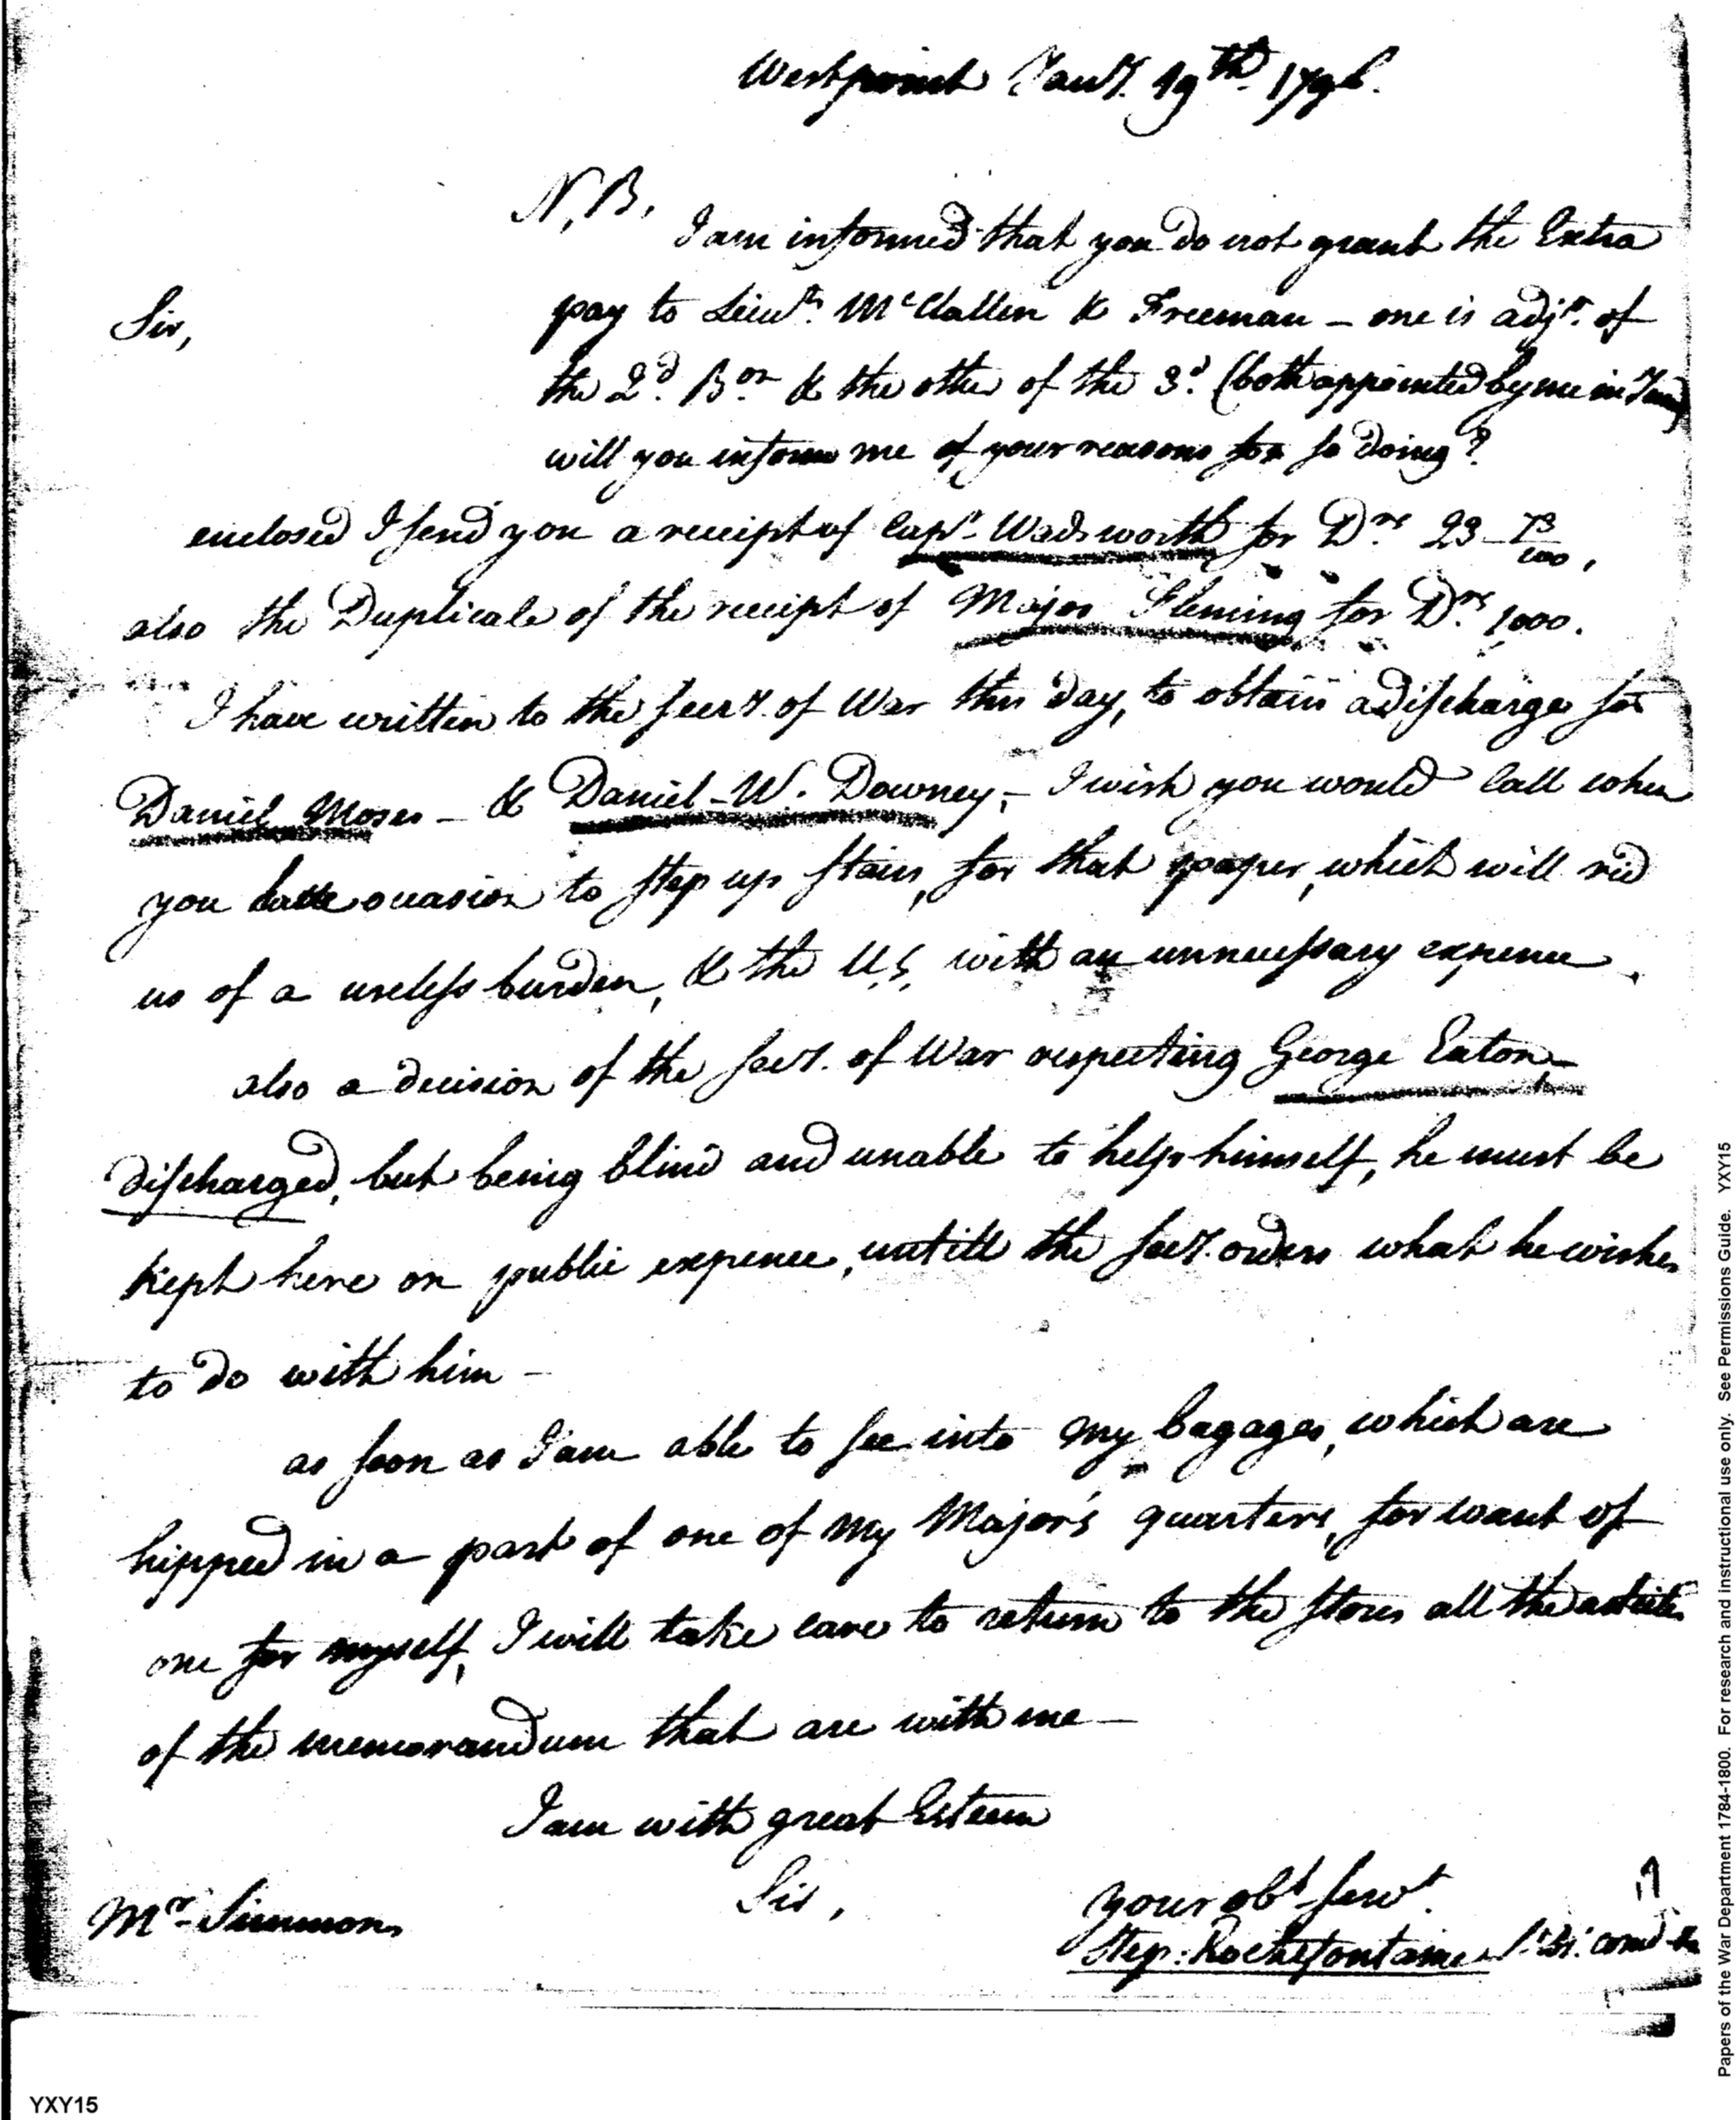 Westpoint Jany. 19th. 1796.
N.B.
I am informed that you do not grant the Extra
Sir,
pay to Lieuts. McClallen & Freeman – one is adjt. of
the 2d. Bon. & the other of the 3d. (both appointed by me in
will you inform me of your reasons for so doing?
enclosed I send you a receipt of Capt. Wadsworth for Drs. 23 - 73/100,
also the Duplicate of the receipt of Major Fleming for Drs. 1,000.
I have written to the secry. of War this day, to obtain a discharge for
Daniel Moses – & Daniel – W. Downey, – I wish you would Call when
you have occasion to step up stairs, for that paper, which will rid
us of a useless burden, & the U.S. with an unnecessary expence.
also a decision of the secy. of War respecting George Eaton, –
discharged, but being blind and unable to help himself, he must be
kept here on public expence, untill the secy. orders what he wishes
to do with him –
as soon as I am able to see into my bagages, which are
hipped in a part of one of my Major's quarters, for want of
one for myself, I will take care to return to the stores all the articles
of the memorandum that are with me –
I am with great Esteem
Sir,
your obt. servt.
Mr. Simmons
Step: Rochefontaine
YXY15
Papers of the War Department 1784-1800. For research and instructional use only. See Permissions Guide. YXY15